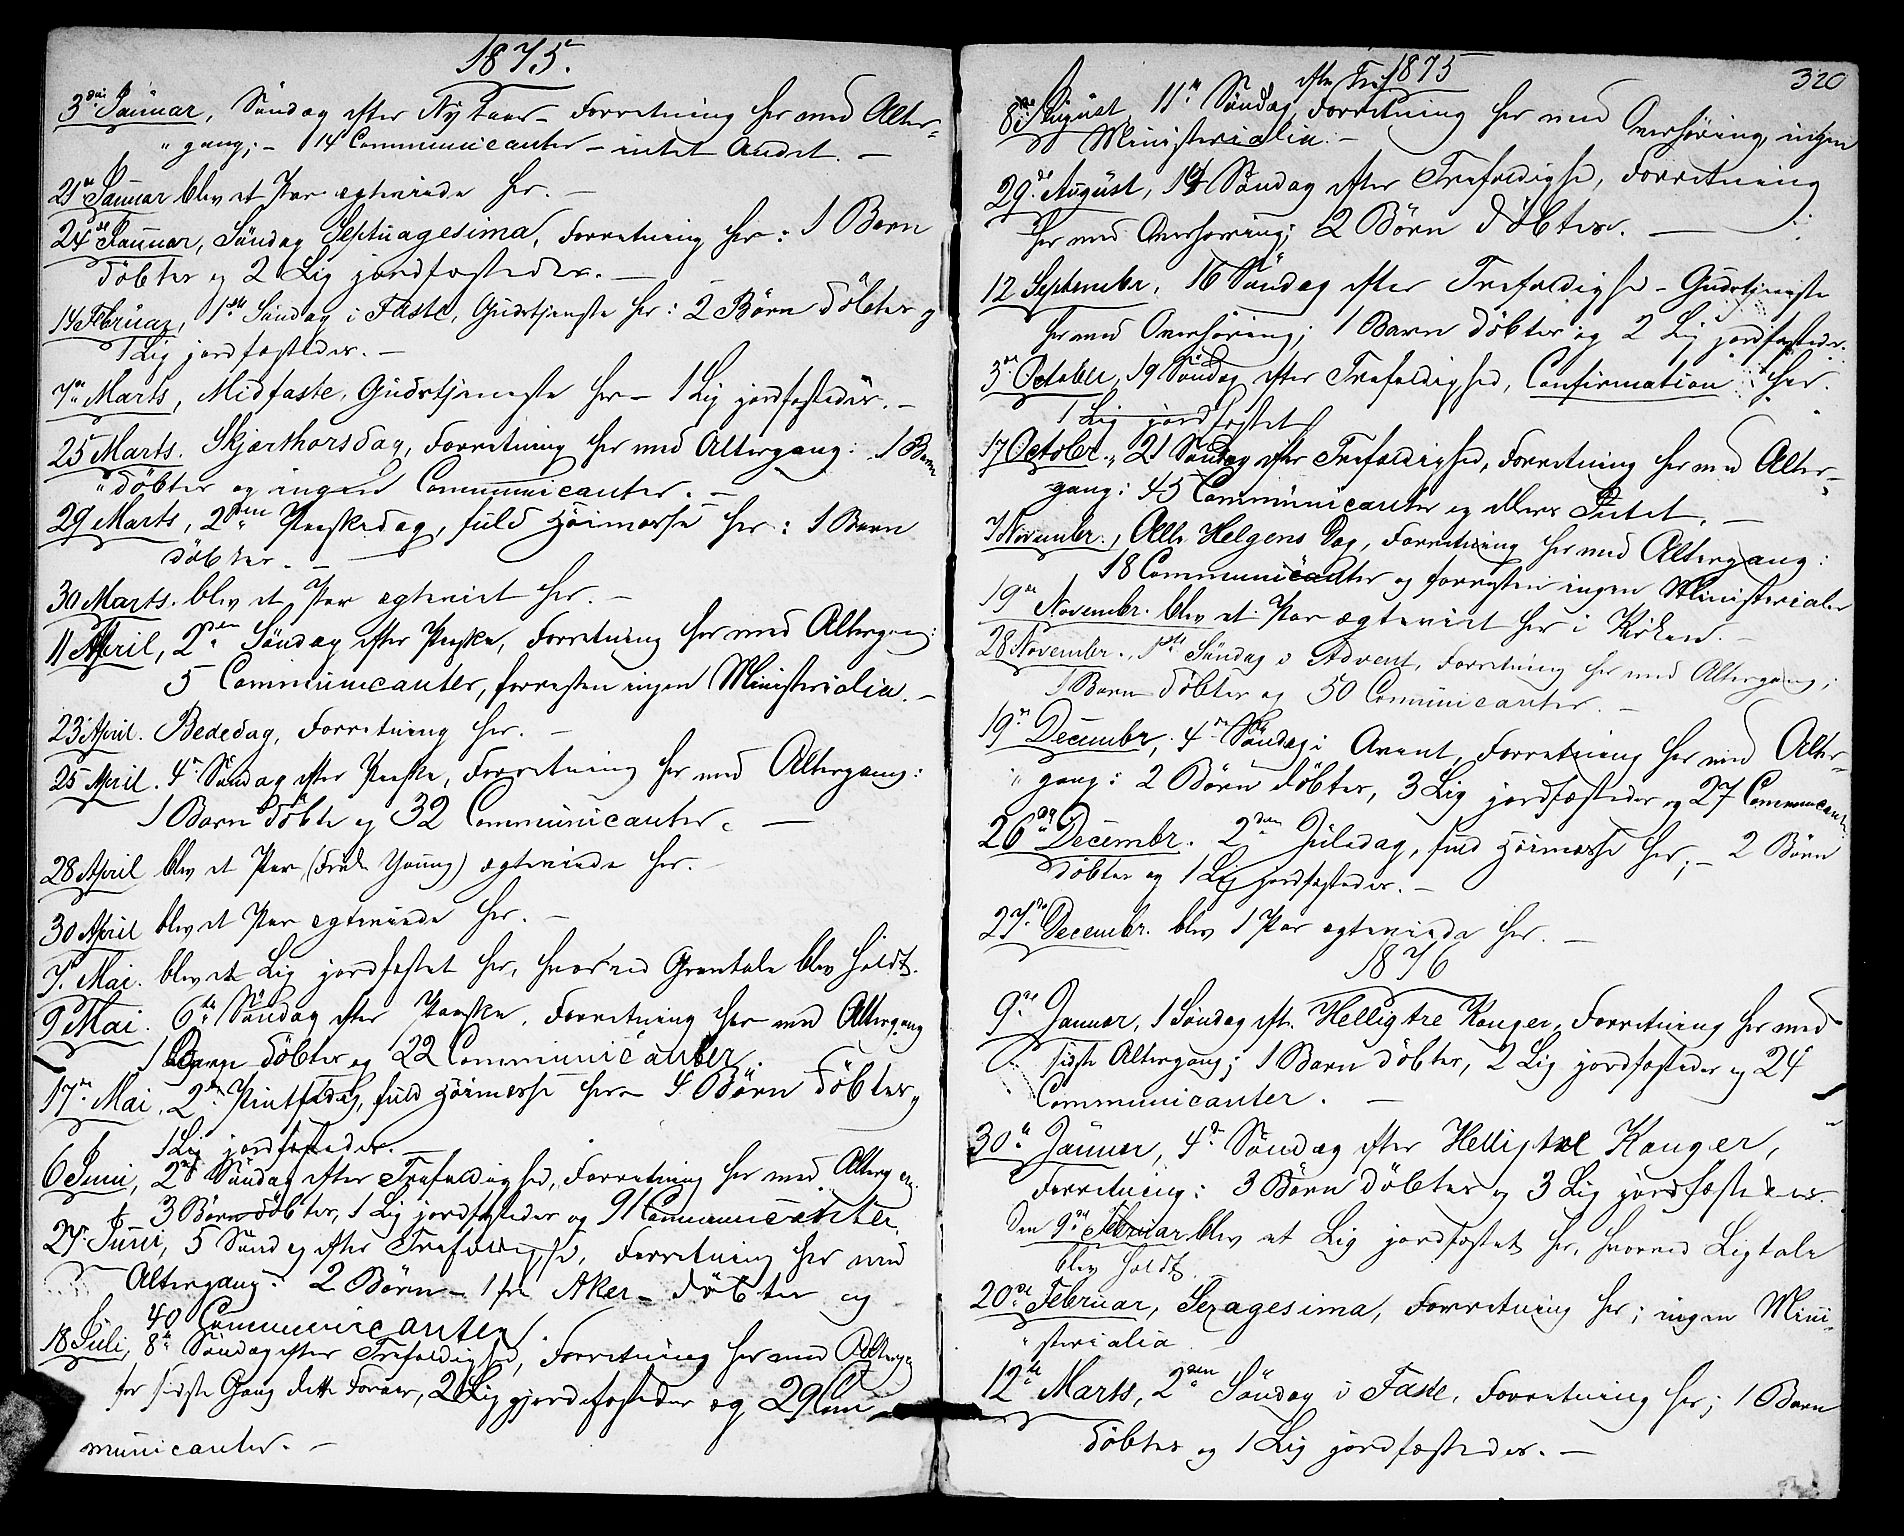 1875.
3die Januar, Søndag efter Nytaar – Forretning her med Alter-
„gang; – 14 Communicanter – intet Andet. –
21de Januar blev et Par egteviede her. –
24de Januar, Søndag Septuagesima, Forretning her: 1 Barn
døbtes og 2 Lig jordfæstedes. –
14 Februar, 1ste Søndag i Faste, Gudstjeneste her: 2 Børn døbtes og
1 Lig jordfæstedes. –
7de Marts, Midfaste, Gudstjeneste her – 1 Lig jordfæstedes. –
25 Marts. Skjærthorsdag, Forretning her med Altergang: 1 Barn
„døbtes og ingen Communicanter. –
29 Marts, 2den Paaskedag, fuld Høimesse her: 1 Barn
døbtes. –
30 Marts. blev et Par egteviet her. –
11 April, 2den Søndag efter Paaske, Forretning her med Altergang:
5 Communicanter, forresten ingen Ministerialia. –
23 April. Bededag, Forretning her. –
25 April. 4de Søndag efter Paaske, Forretning her med Altergang:
1 Barn døbte og 32 Communicanter. –
28 April blev et Par (Fredr. Young) egteviede her.
30 April blev et Par egteviede her. –
7de Mai. blev et Lig jordfæstet her, hvorved Gravtale blev holdt.
9de Mai. 6te Søndag efter Paaske, Forretning her med Altergang
1 Barn døbtes og 22 Communicanter.
17de Mai, 2den Pintsedag, fuld Høimesse her – 4 Børn døbtes og
1 Lig jordfæstedes. –
6 Juni, 2den Søndag efter Trefoldighed, Forretning her med Altergang.
3 Børn døbtes, 1 Lig jordfæstedes og 91 Communicanter.
27de Juni, 5 Søndag efter Trefoldighed, Forretning her med
Altergang: 2 Børn – 1 fra Aker – døbtes og
40 Communicanter.
18 Juli, 8de Søndag efter Trefoldighed, Forretning her med Altergang
for sidste Gang dette Foraar, 2 Lig jordfæstedes og 29 Com-
municanter. –
1875
320
8de August, 11te Søndag efter Tref. Forretning her med Overhøring, ingen
Ministerialia. –
29de August, 14 Søndag efter Trefoldighed, Forretning
her med Overhøring; 2 Børn døbtes. –
12 September, 16 Søndag efter Trefoldighed – Gudstjeneste
her med Overhøring; 1 Barn døbtes og 2 Lig jordfæstedes.
3de October, 19 Søndag efter Trefoldighed, Confirmation her.
1 Lig jordfæstet
17 October, 21 Søndag efter Trefoldighed, Forretning her med Alter-
gang: 45 Communicanter og ellers Intet. –
7 November, Alle Helgens Dag, Forretning her med Altergang:
18 Communicanter og forresten ingen Ministerialia
19de Novembr. blev et Par egteviet her i Kirken. –
28 Novembr., 1ste Søndag i Advent, Forretning her med Altergang;
1 Barn døbtes og 50 Communicanter. –
19de Decembr, 4de Søndag i Avent, Forretning her med Alter-
„gang: 2 Børn døbtes, 3 Lig jordfæstedes og 27 Communicanter.
26de Decembr. 2den Juledag, fuld Høimesse her; – 2 Børn
døbtes og 1 Lig jordfæstedes. –
27de Decembr. blev 1 Par egteviede her. –
1876
9de Januar, 1 Søndag eft. Hellig tre Konger, Forretning her med
sidste Altergang; 1 Barn døbtes, 2 Lig jordfæstedes og 24
Communicanter. –
30te Januar, 4de Søndag efter Hellig tre Konger,
Forretning: 3 Børn døbtes og 3 Lig jordfæstedes.
Den 9de Februar blev et Lig jordfæstet her, hvorved Ligtale
blev holdt.
20de Februar, Sexagesima, Forretning her; ingen Mini-
„sterialia.
12te Marts, 2den Søndag i Faste, Forretning her; 1 Barn
døbtes og 1 Lig jordfæstedes. –